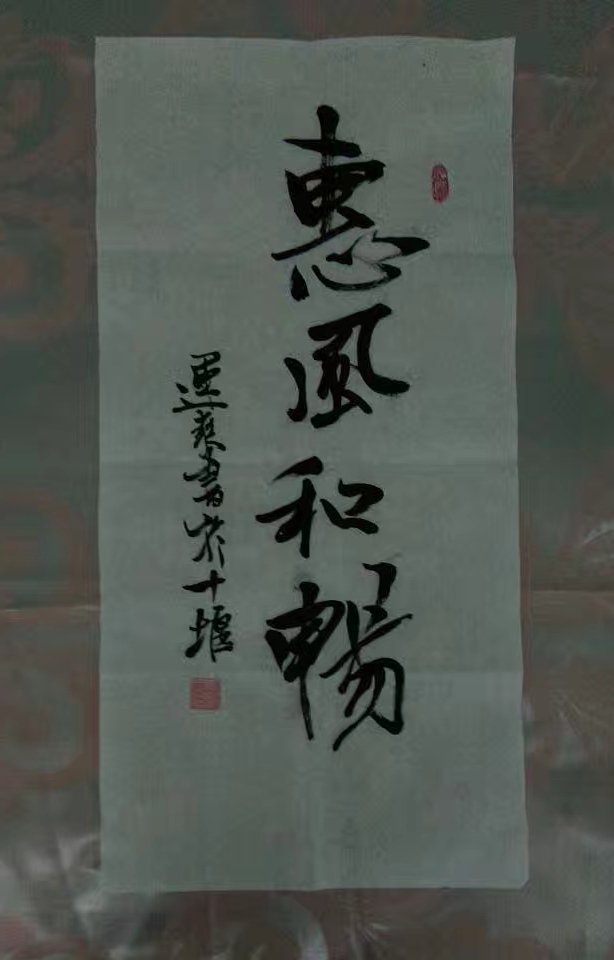 惠風和暢
運來書於十堰